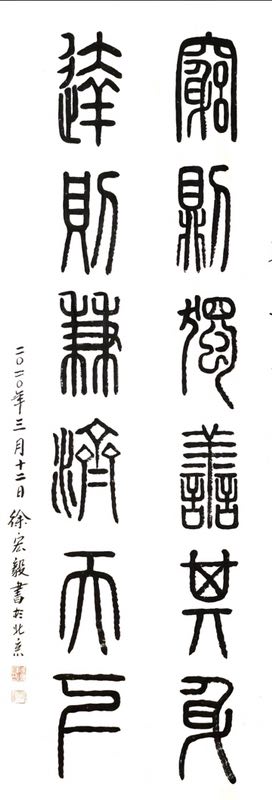 窮則獨善其身
達則兼濟天下
二〇二〇年三月十二日徐宏毅書於北京